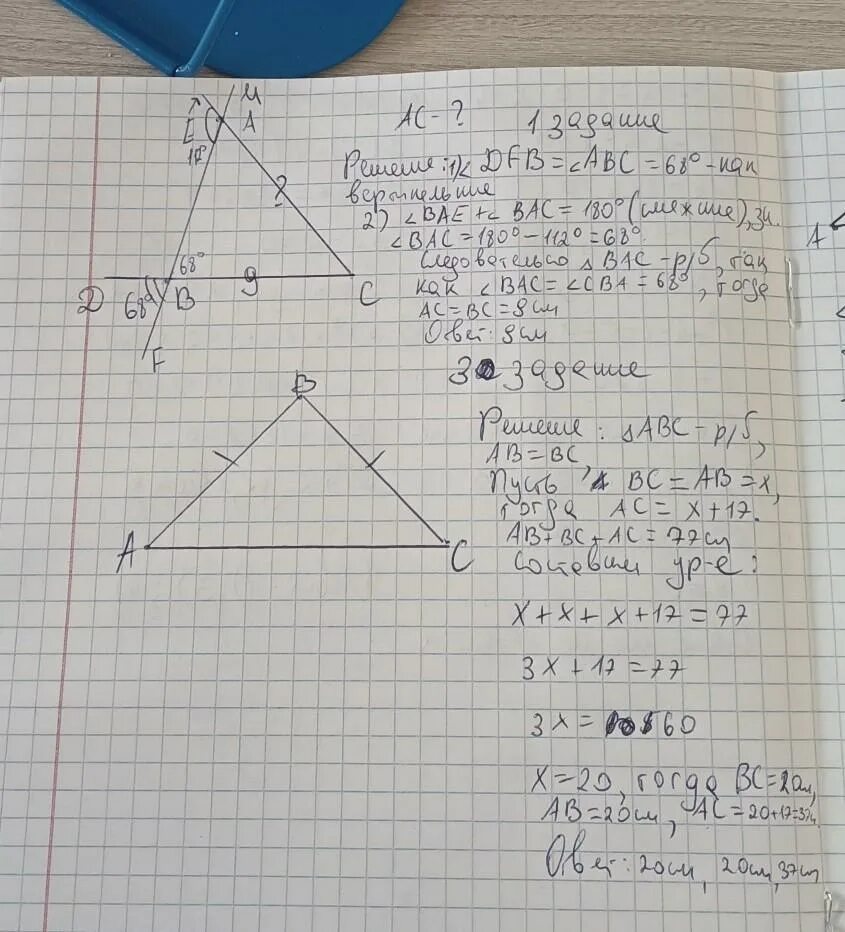 М
Е А
?
68°
D 68° B 9 C
F
AC - ?
1 задание
Решение: 1) ∠DFB = ∠ABC = 68° - как
вертикльные
2) ∠BAE + ∠BAC = 180° (смежные), зн.
∠BAC = 180° - 112° = 68°.
Следовательно △BAC - р/б, так
как ∠BAC = ∠CBA = 68°, тогда
AC = BC = 9см
Ответ: 9см
3 задание
B
A C
Решение: △ABC - р/б,
AB = BC
Пусть BC = AB = x,
тогда AC = x + 17.
AB + BC + AC = 77см
Составим ур-е:
x + x + x + 17 = 77
3x + 17 = 77
3x = 60
x = 20, тогда BC = 20см,
AB = 20см, AC = 20+17=37см.
Ответ: 20см, 20см, 37см
A